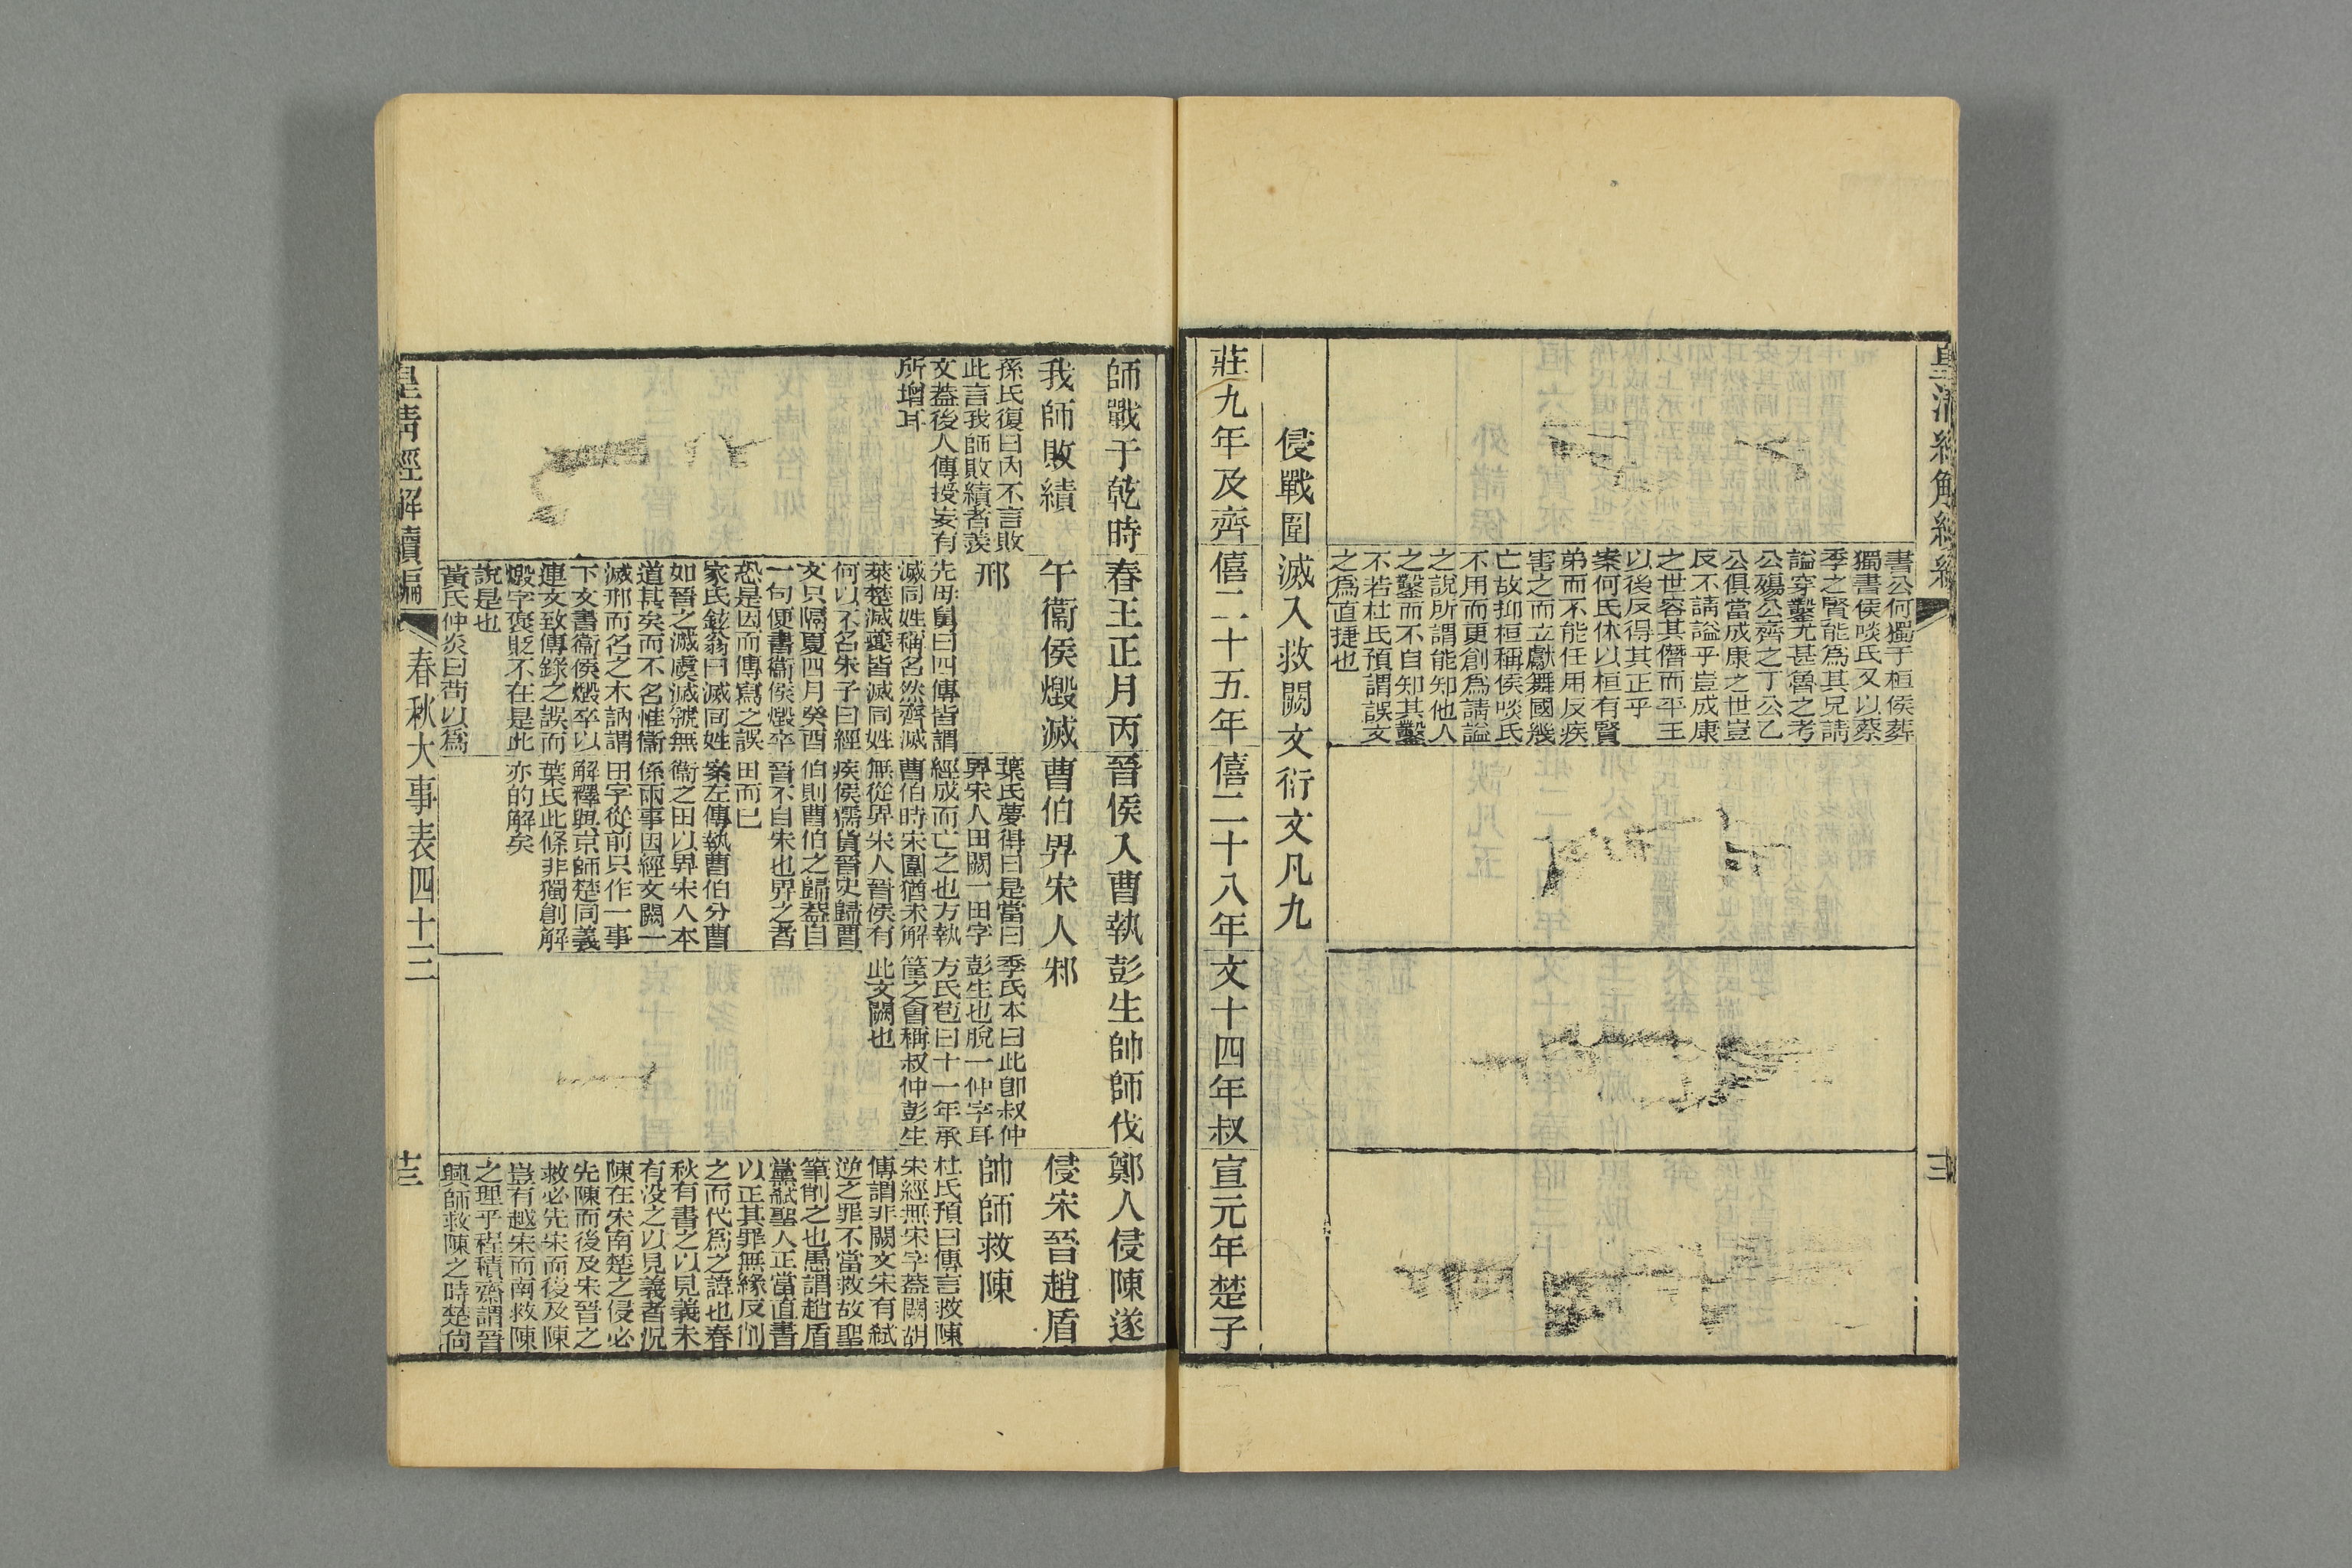 皇清經解續編
書公何獨于桓侯葬
獨書侯啖氏又以蔡
季之賢能為其兄請
謚穿鑿尤甚魯之考
公煬公齊之丁公乙
公俱當成康之世豈
反不請謚乎豈成康
之世容其僭而平王
以後反得其正乎
案何氏休以桓有賢
弟而不能任用反疾
害之而立獻舞國幾
亡故抑桓稱侯啖氏
不用而更創為請謚
之說所謂能知他人
之鑿而不自知其鑿
不若杜氏預謂誤文
之為直捷也
侵戰圍滅入救闕文衍文凡九
莊九年及齊
師戰于乾時
我師敗績
孫氏復曰內不言敗
此言我師敗績者羨
文蓋後人傳授妄有
所增耳
僖二十五年
春王正月丙
午衞侯燬滅
邢
先母舅曰四傳皆謂
滅同姓稱名然齊滅
萊楚滅夔皆滅同姓
何以不名朱子曰經
文只隔夏四月癸酉
一句便書衞侯燬卒
恐是因而傳寫之誤
家氏鉉翁曰滅同姓
如晉之滅虞滅虢無
道甚矣而不名惟衞
滅邢而名之木訥謂
下文書衞侯燬卒以
連文致傳錄之誤而
燬字褒貶不在是此
說是也
黃氏仲炎曰苟以為
僖二十八年
晉侯入曹執
曹伯畀宋人
葉氏夢得曰是當曰
畀宋人田闕一田字
經成而亡之也方執
曹伯時宋圍猶未解
無從畀宋人晉侯有
疾侯獳貨晉史歸曹
伯則曹伯之歸蓋自
晉不自宋也畀之者
田而已
案左傳執曹伯分曹
衞之田以畀宋人本
係兩事因經文闕一
田字從前只作一事
解釋與京師楚同義
葉氏此條非獨創解
亦的解矣
文十四年叔
彭生帥師伐
邾
季氏本曰此卽叔仲
彭生也脫一仲字耳
方氏苞曰十一年承
筐之會稱叔仲彭生
此文闕也
宣元年楚子
鄭人侵陳遂
侵宋晉趙盾
帥師救陳
杜氏預曰傳言救陳
宋經無宋字蓋闕胡
傳謂非闕文宋有弑
逆之罪不當救故聖
筆削之也愚謂趙盾
黨弑聖人正當直書
以正其罪無緣反削
之而代為之諱也春
秋有書之以見義未
有沒之以見義者況
陳在宋南楚之侵必
先陳而後及宋晉之
救必先宋而後及陳
豈有越宋而南救陳
之理乎程積齋謂晉
興師救陳之時楚尚
皇清經解續編
春秋大事表四十三